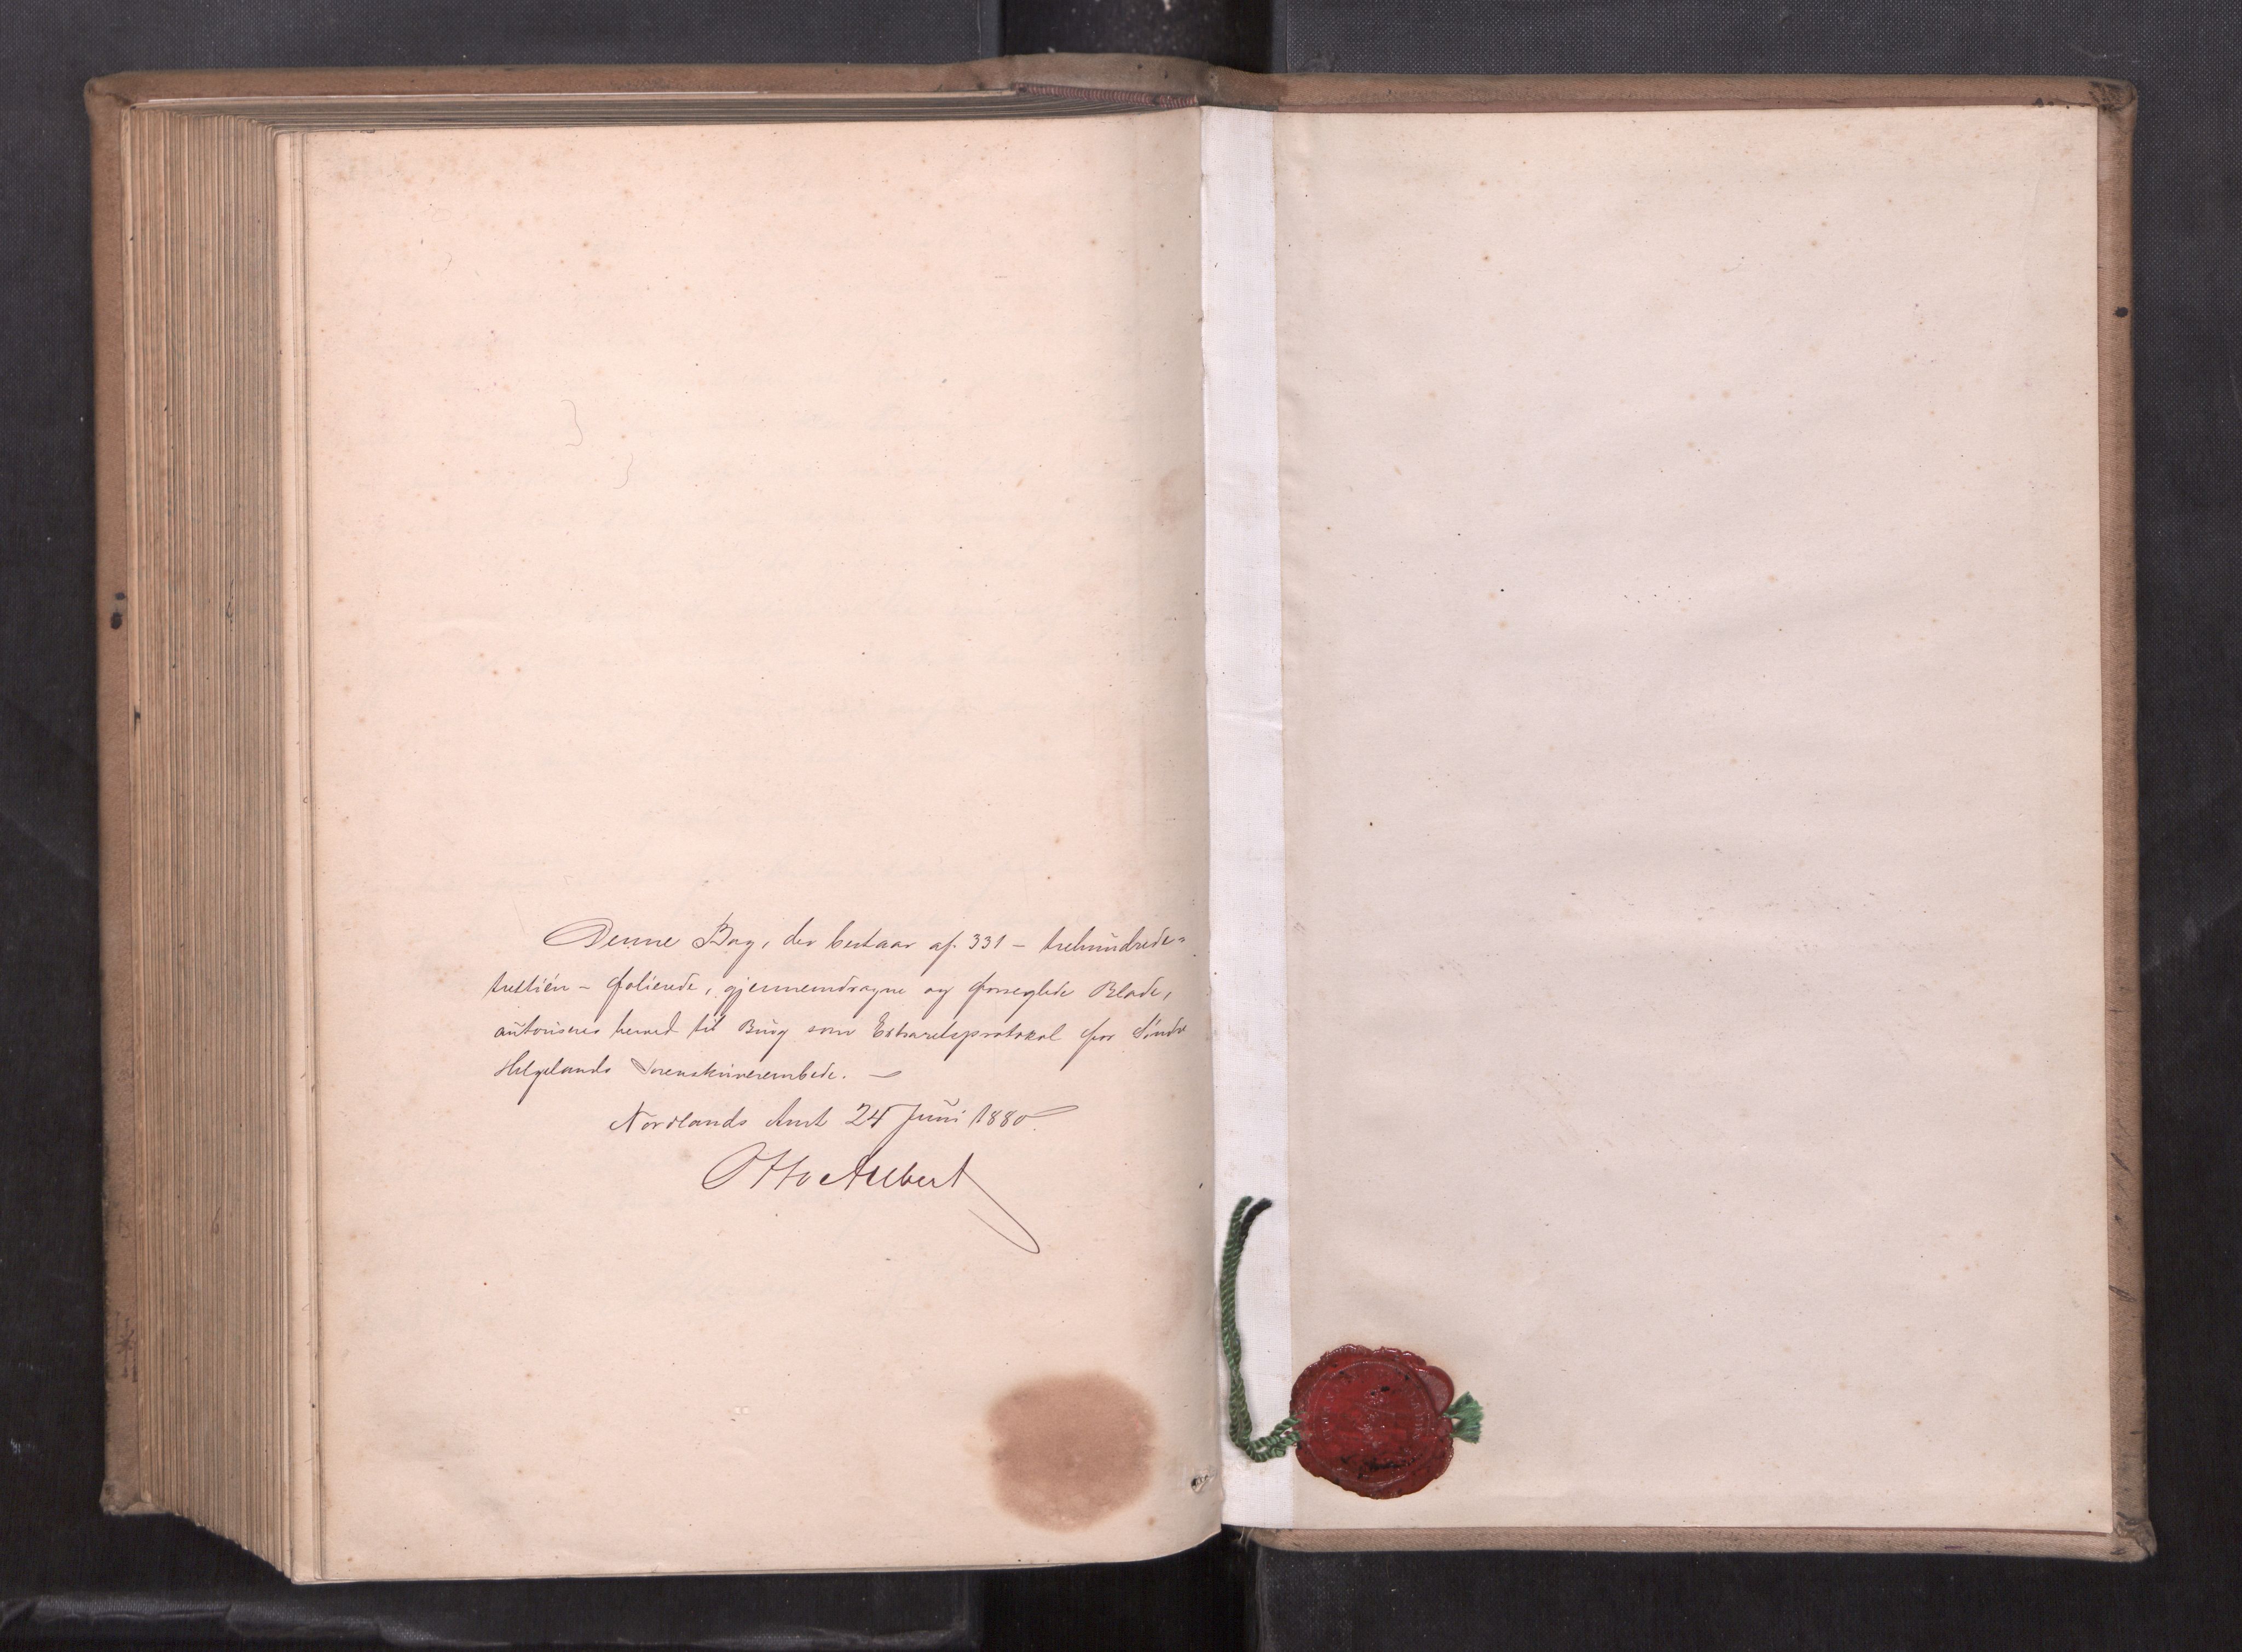 Denne Bog, der bestaar af 331 – trehundrede-
trettién – folierede, gjennemdragne og forseglede Blade,
autoriseres herved til Brug som Extraretsprotokol for Søndre
Helgelands Sorenskriverembede. –
Nordlands Amt 24 Juni 1880.
Otto Aubert